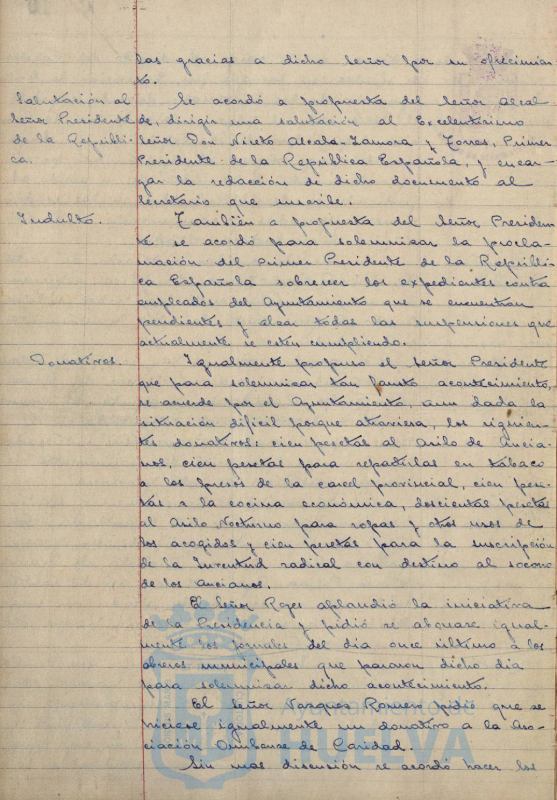 las gracias a dicho Señor por su ofrecimien
to.
Salutación al
Señor Presidente
de la Repúbli-
ca.
Se acordó a propuesta del Señor Alcal
de, dirigir una salutación al Excelentísimo
Señor Don Niceto Alcalá-Zamora y Torres, Primer
Presidente de la República Española, y encar-
gar la redacción de dicho documento al
Secretario que suscribe.
Indulto.
También a propuesta del Señor Presiden
te se acordó para solemnizar la procla-
mación del primer Presidente de la Repúbli
ca Española sobreseer los expedientes contra
empleados del Ayuntamiento que se encuentran
pendientes y alzar todas las suspensiones que
actualmente se estén cumpliendo.
Donativos.
Igualmente propuso el Señor Presidente
que para solemnizar tan fausto acontecimiento,
se acuerde por el Ayuntamiento, aun dada la
situación difícil porque atraviesa, los siguien-
tes donativos: cien pesetas al Asilo de Ancia-
nos, cien pesetas para repartirlas en tabaco
a los presos de la carcel provincial, cien pese-
tas a la cocina económica, doscientas pesetas
al Asilo Nocturno para ropas y otros usos de
los acogidos y cien pesetas para la suscripción
de la Juventud radical con destino al socorro
de los Ancianos.
El Señor Roges aplaudió la iniciativa
de la Presidencia y pidió se abonase igual-
mente los jornales del día once último a los
obreros municipales que pararon dicho día
para solemnizar dicho acontecimiento.
El Señor Vazquez Romero pidió que se
hiciese igualmente un donativo a la Aso-
ciación Onubense de Caridad.
Sin mas discusión se acordó hacer los
Ayuntamiento de
HUELVA